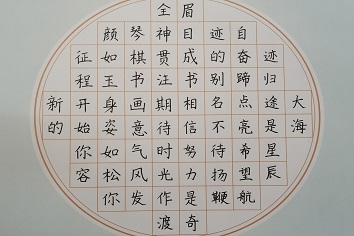 新的
征程开始你容
颜如玉身姿如松你
琴棋书画意气风发
全神贯注期待时光作渡
眉目成书相信努力是奇
迹的别名不待扬鞭
自奋蹄点亮希望航
迹归途是星辰
大海